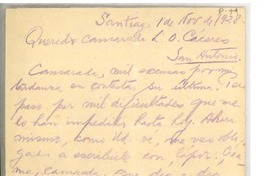 Santiago 1 de Nov. de 1928
Querido camarada L. O. Cáceres
San Antonio.
Camarada, mil excusas por mi
tardanza en contestar su última. He
paso por mil dificultades que me lo
han impedido hasta hoy. Ahora
mismo, como Ud. ve, me veo obli-
gado a escribirle con lápiz. Créa-
me, camarada, que día a día